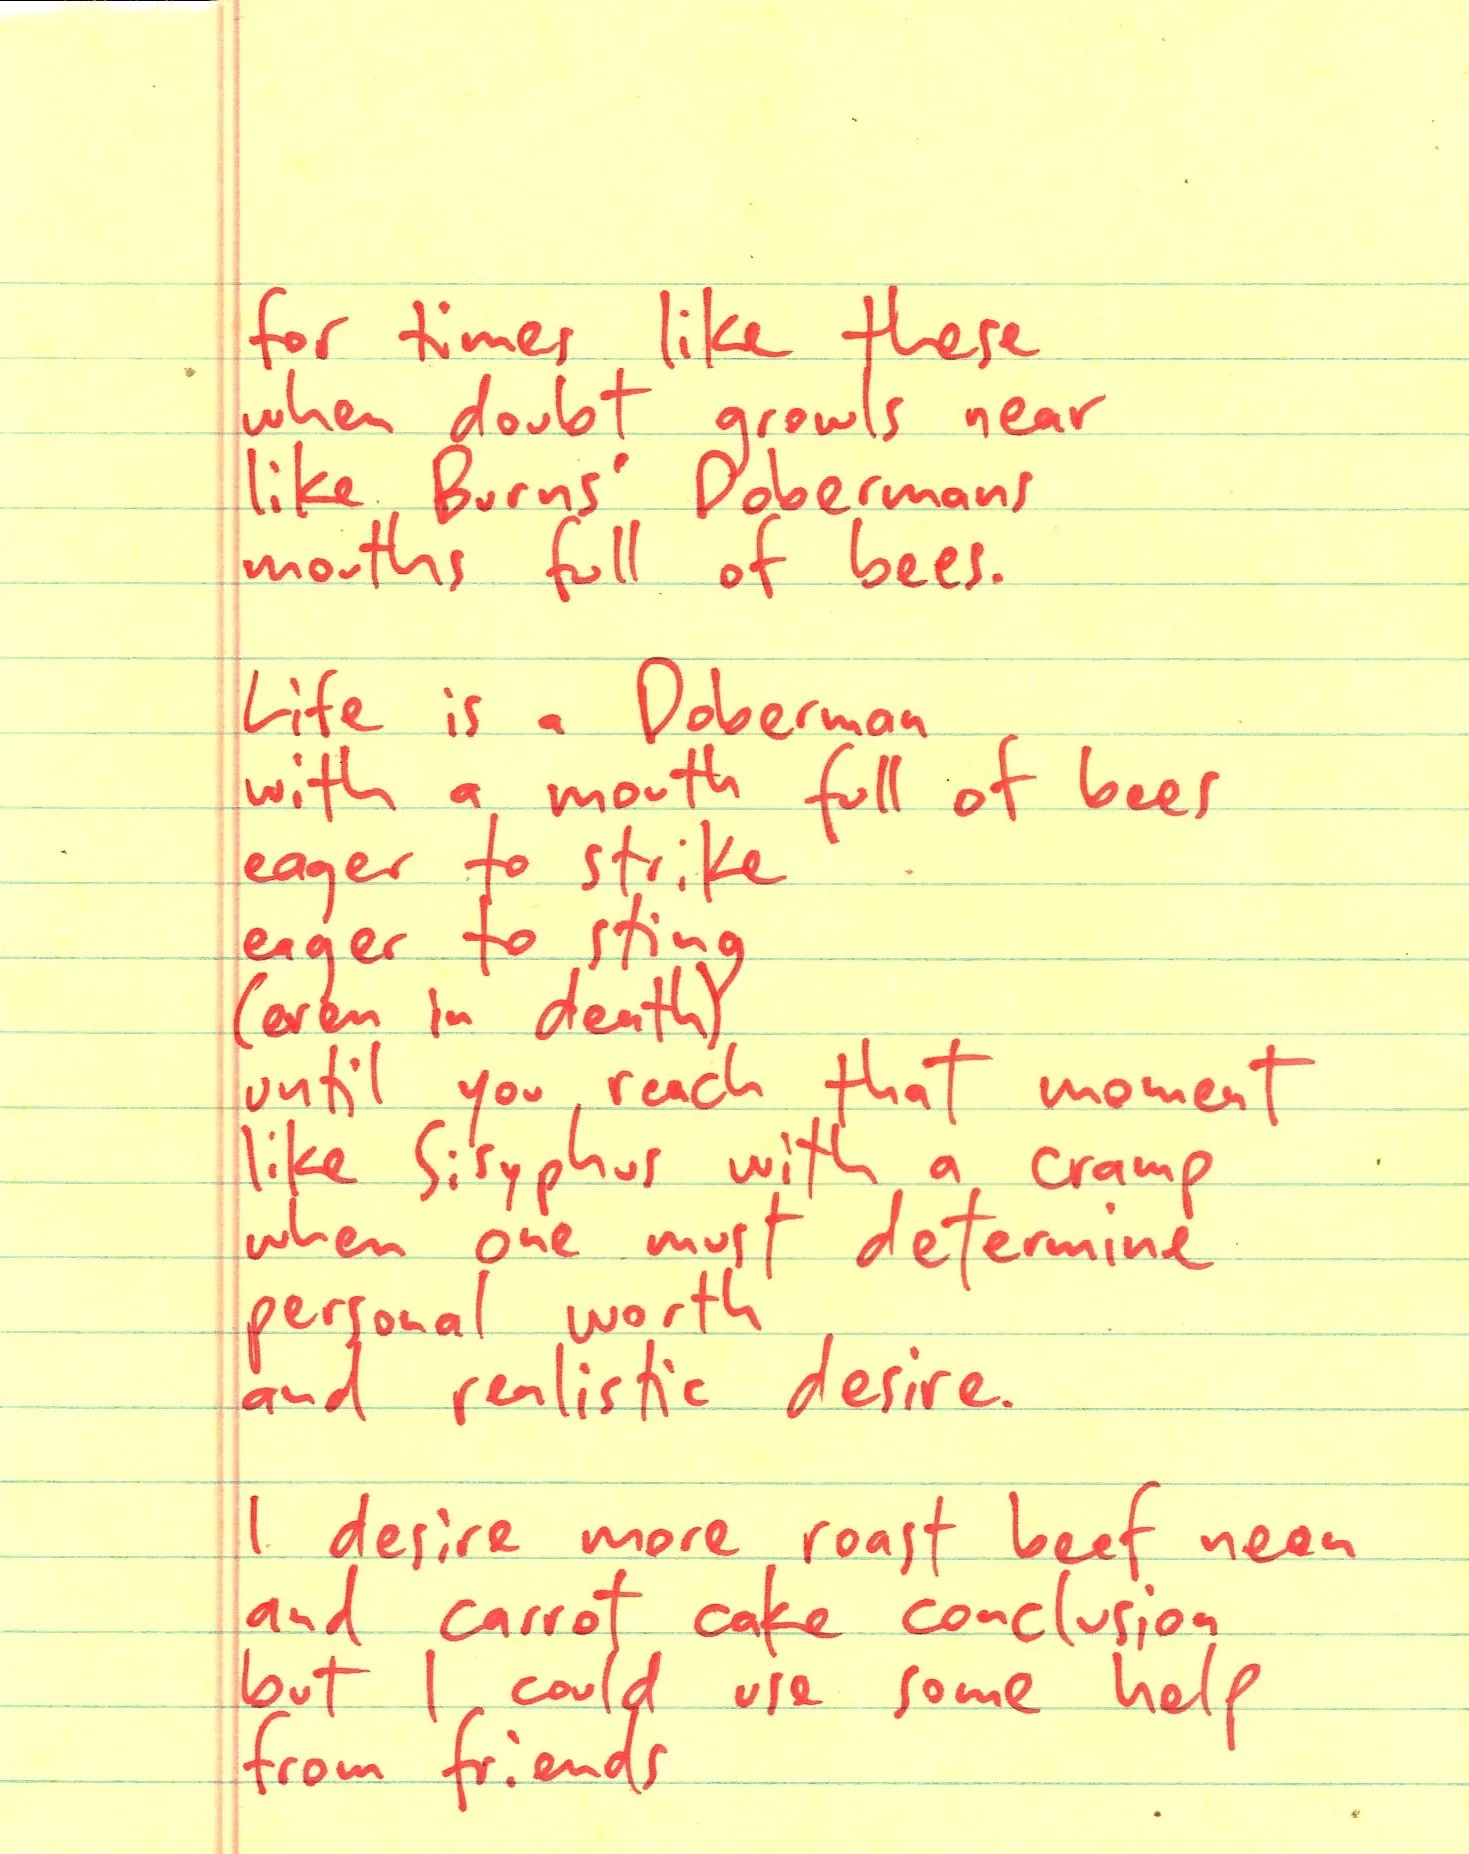 for times like these
when doubt growls near
like Burns' Dobermans
mouths full of bees.
Life is a Doberman
with a mouth full of bees
eager to strike
eager to sting
(even in death)
until you reach that moment
like Sisyphus with a cramp
when one must determine
personal worth
and realistic desire.
I desire more roast beef neen
and carrot cake conclusion
but I could use some help
from friends